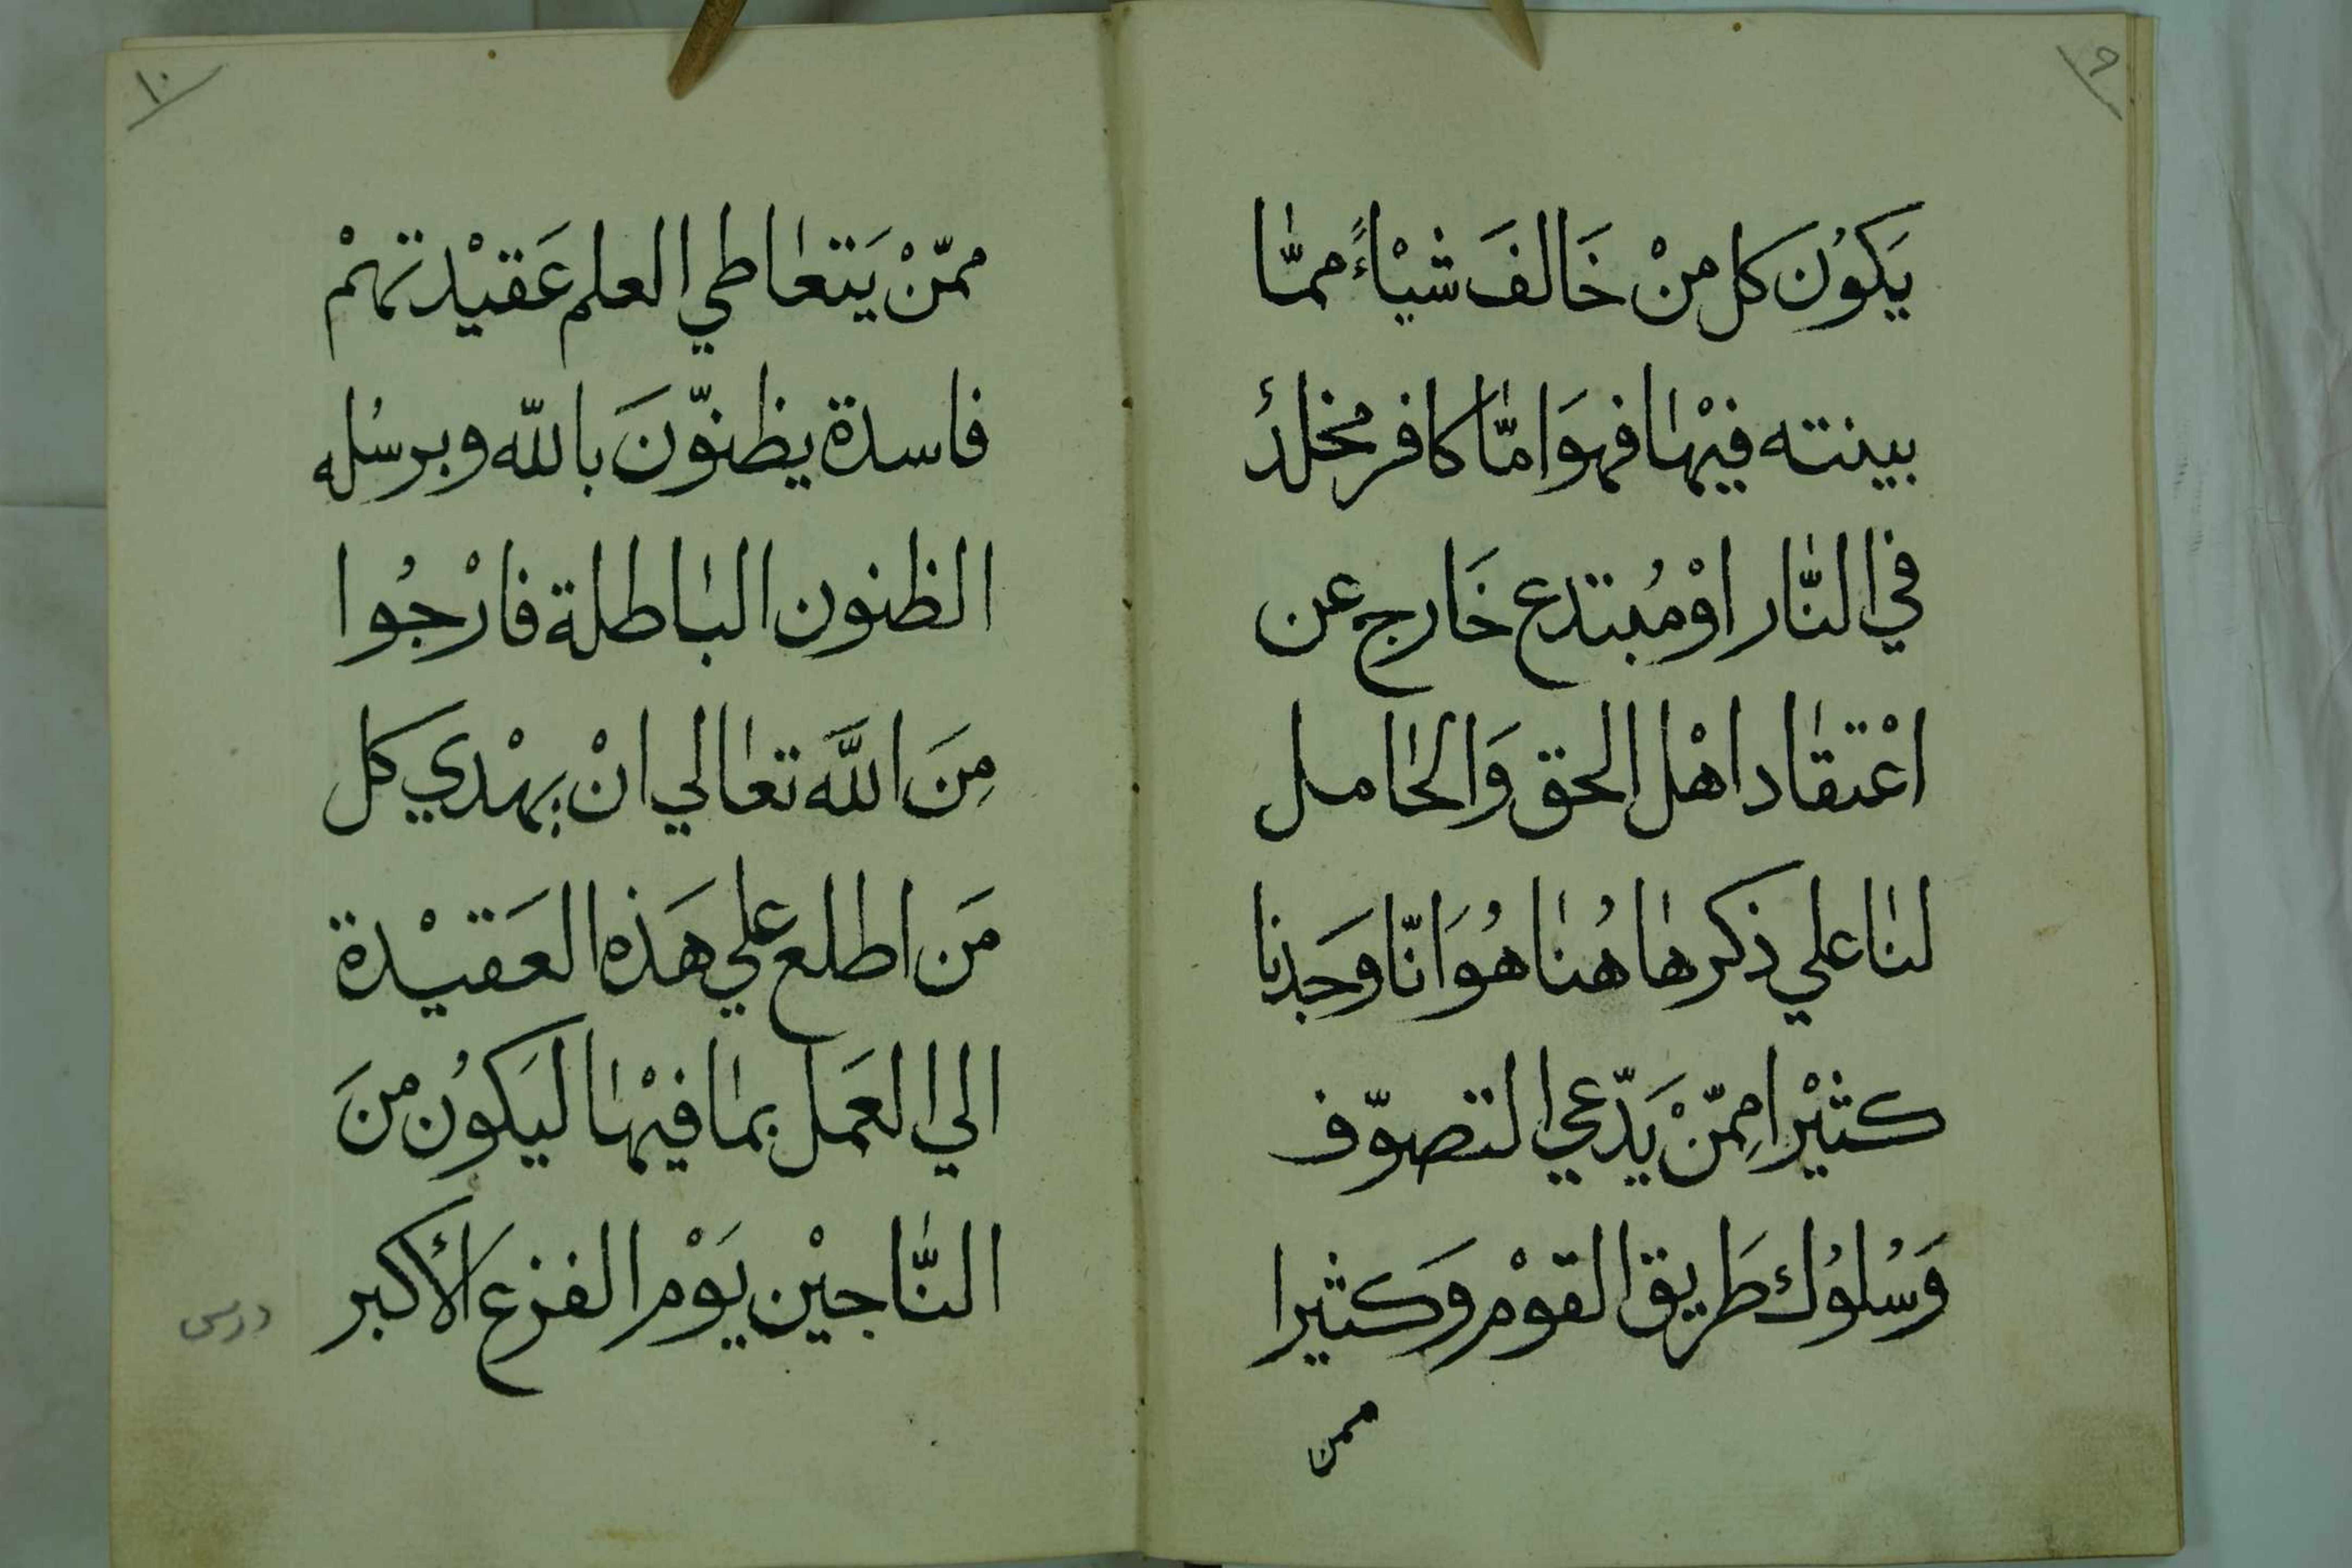 ٩
يَكوُنَ كل منْ خَالفَ شيْاءً ممّٰا
بينته فيْهٰا فهوَ امّٰا كافر مخلدٌ
في النّٰار اوْ مُبتدع خَارج عن
اعْتقٰاد اهْل الحق وَالحٰامل
لنٰا علي ذكرهٰا هُنٰا هُوَ انّا وَجدنا
كثيْرا مِمّنْ يَدّعي التصوّف
وَسُلوُك طَريق القوْم وَكثيرا
ممن
١٠
ممّنْ يَتعٰاطي العلم عَقيْدتهمْ
فاسدة يظنوّنَ بالله وبرسُله
الظنون البٰاطلة فارْجُوا
مِنَ اللَّه تعٰالي انْ يهْدي كل
مَن اطلع علي هَذه العَقيْدة
الي العَمل بمٰا فيْهٰا ليَكوُن منَ
النّٰاجيْن يَوْم الفزع الأكبر
درس